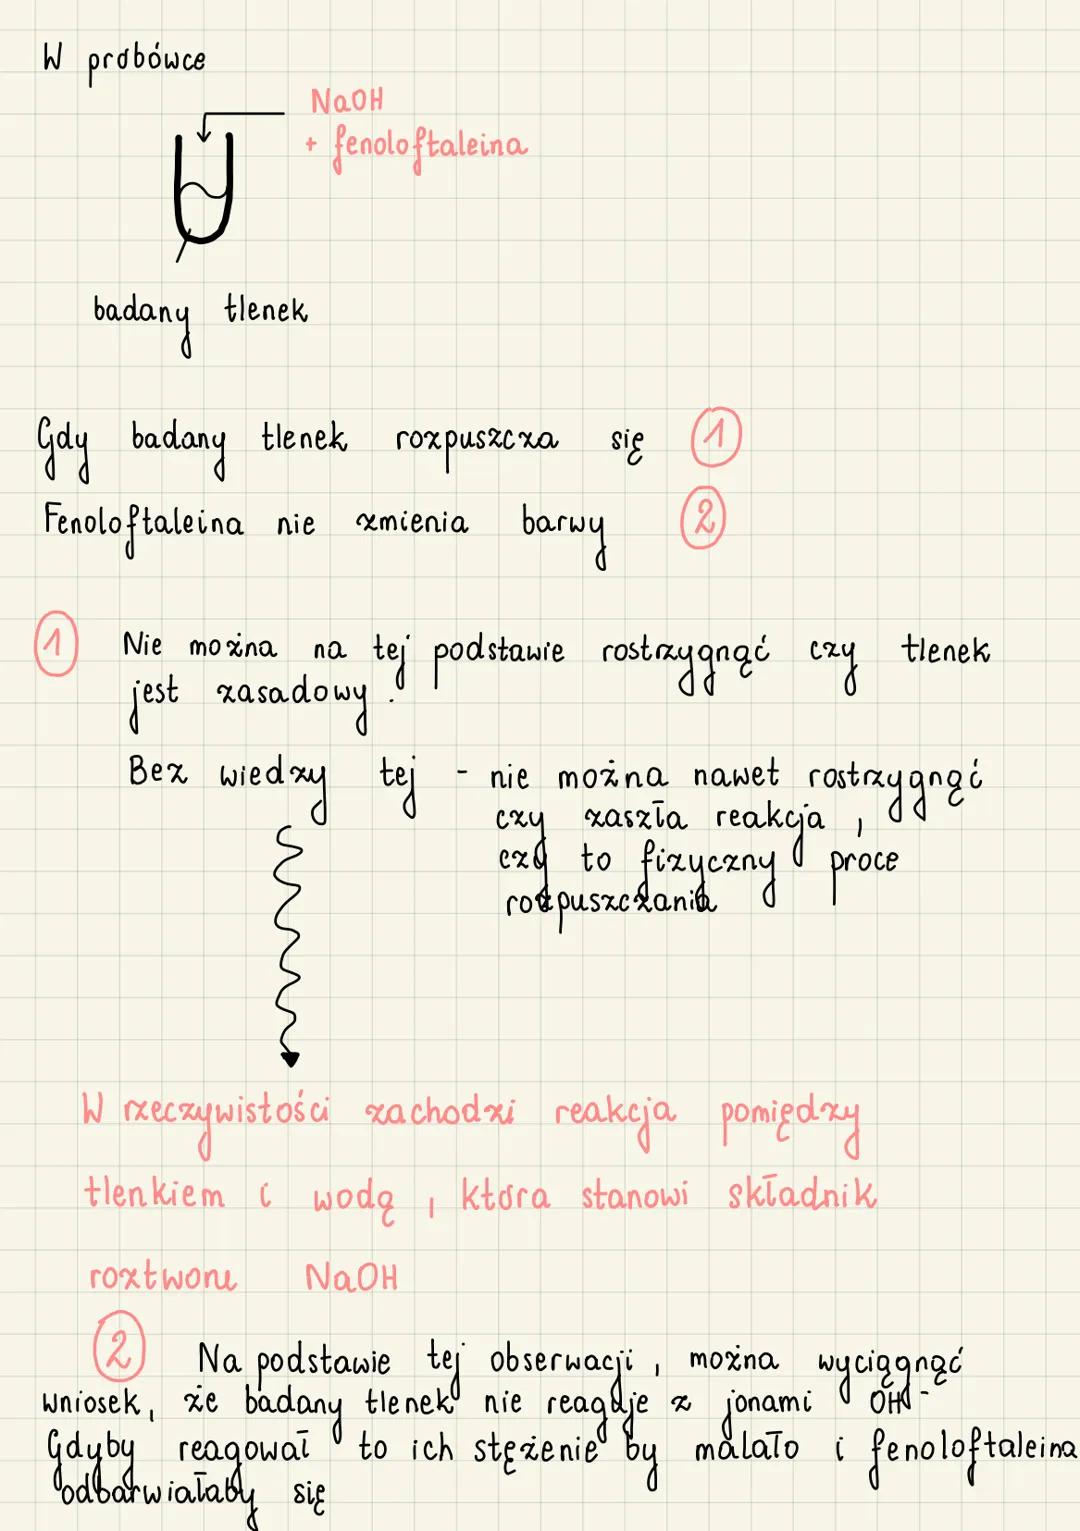 W probówce
NaOH
+ fenoloftaleina
badany tlenek
Gdy badany tlenek rozpuszcza się 1
Fenoloftaleina nie zmienia barwy 2
1 Nie można na tej podstawie rostrzygnąć czy tlenek
jest zasadowy.
Bez wiedzy tej - nie można nawet rostrzygnąć
czy zaszła reakcja,
czy to fizyczny proce
rozpuszczania
W rzeczywistości zachodzi reakcja pomiędzy
tlenkiem i wodą, która stanowi składnik
roztworu NaOH
2 Na podstawie tej obserwacji, można wyciągnąć
wniosek, że badany tlenek nie reaguje z jonami OH⁻
Gdyby reagował to ich stężenie by malało i fenoloftaleina
odbarwiałaby się